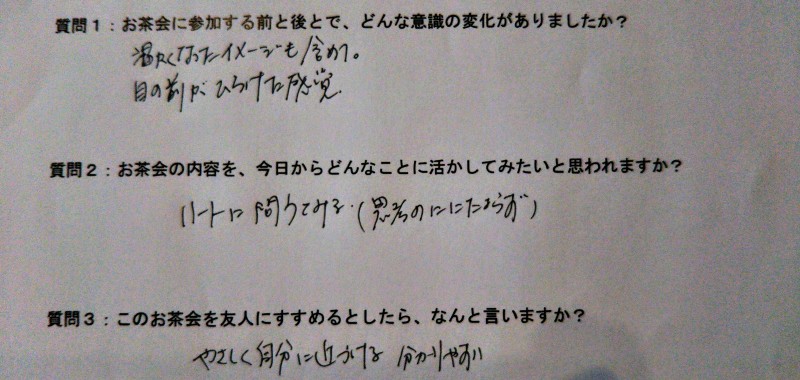 質問１：お茶会に参加する前と後とで、どんな意識の変化がありましたか？
温かくなったイメージも含めて。
目の前が、ひらけた感覚
質問２：お茶会の内容を、今日からどんなことに活かしてみたいと思われますか？
ハートに問うてみる。(思考の
質問３：このお茶会を友人にすすめるとしたら、なんと言いますか？
やさしく自分に近づける 分かりやすい